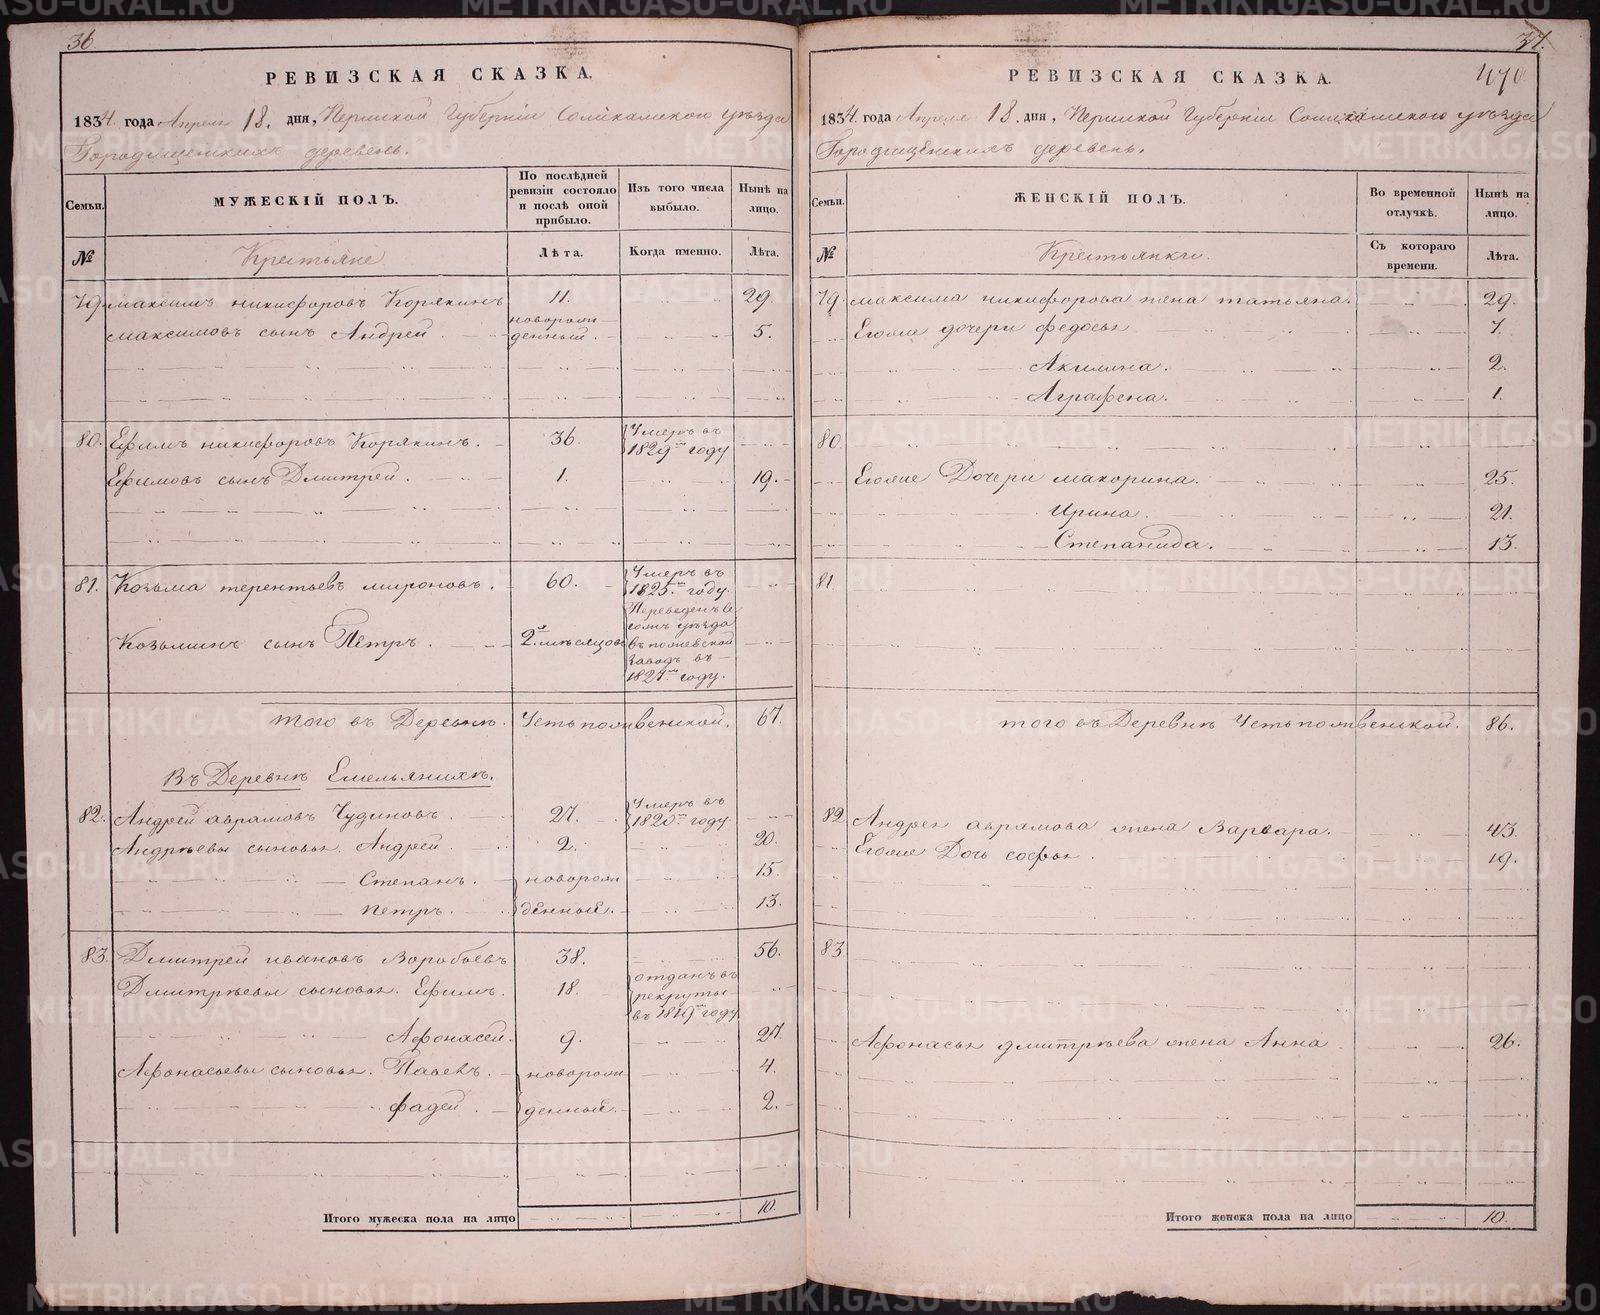 36.
РЕВИЗСКАЯ СКАЗКА.
1834 года Апреля 18. дня, Пермской Губернiи Соликамского уѣзда
Городищенскихъ деревень.
Семьи.
МУЖЕСКIЙ ПОЛЪ.
По послѣдней ревизiи состояло и послѣ оной прибыло.
Изъ того числа выбыло.
Нынѣ на лицо.
№
Крестьяне
Лѣта.
Когда именно.
Лѣта.
79. максимъ никифоровъ Корякинъ 11. 29.
максимовъ сынъ Андрей. новорожденный. 5.
80. Ефимъ никифоровъ Корякинъ. 36. Умеръ въ 1829м году
Ефимовъ сынъ Дмитрей. 1. 19.
81. Козьма терентьевъ мироновъ. 60. Умеръ въ 1825м году.
Козьминъ сынъ Петръ. 2х мѣсяцовъ Переведенъ уѣзда въ пожевской заводъ въ 1821м году.
того въ Деревнѣ. Устьпожвенской. 67.
Въ Деревнѣ Емельянихѣ.
82. Андрей аврамовъ Чудиновъ. 27. Умеръ въ 1820м году
Андрѣевы сыновья Андрей. 2. 20.
Степанъ. новорож 15.
Петръ. денной. 13.
83. Дмитрей ивановъ Воробьевъ 38. 56.
Дмитрѣевы сыновья. Ефимъ. 18. отданъ въ рекруты въ 1819м году
Афонасей. 9. 27.
Афонасьевы сыновья. Павелъ. новорож 4.
фадей. денной. 2.
Итого мужеска пола на лицо 10.
37.
РЕВИЗСКАЯ СКАЗКА.
470
1834. года Апреля 18. дня, Пермской Губернiи Соликамского уѣзда
Городищенскихъ деревень.
Семьи.
ЖЕНСКIЙ ПОЛЪ.
Во временной отлучкѣ.
Нынѣ на лицо.
№
Крестьянки.
Съ котораго времени.
Лѣта.
79. максима никифорова жена татьяна. 29.
Егоже дочери федосья 7.
Акилина. 2.
Аграфена. 1.
80.
Егоже Дочери макорина. 25.
Ирина. 21.
Степанида. 13.
81.
того въ Деревнѣ Устьпожвенской. 86.
82. Андрея аврамова жена Варвара. 43.
Егоже Дочь софья. 19.
83.
Афонасья дмитрѣева жена Анна 26.
Итого женска пола на лицо 10.
METRIKI.GASO-URAL.RU